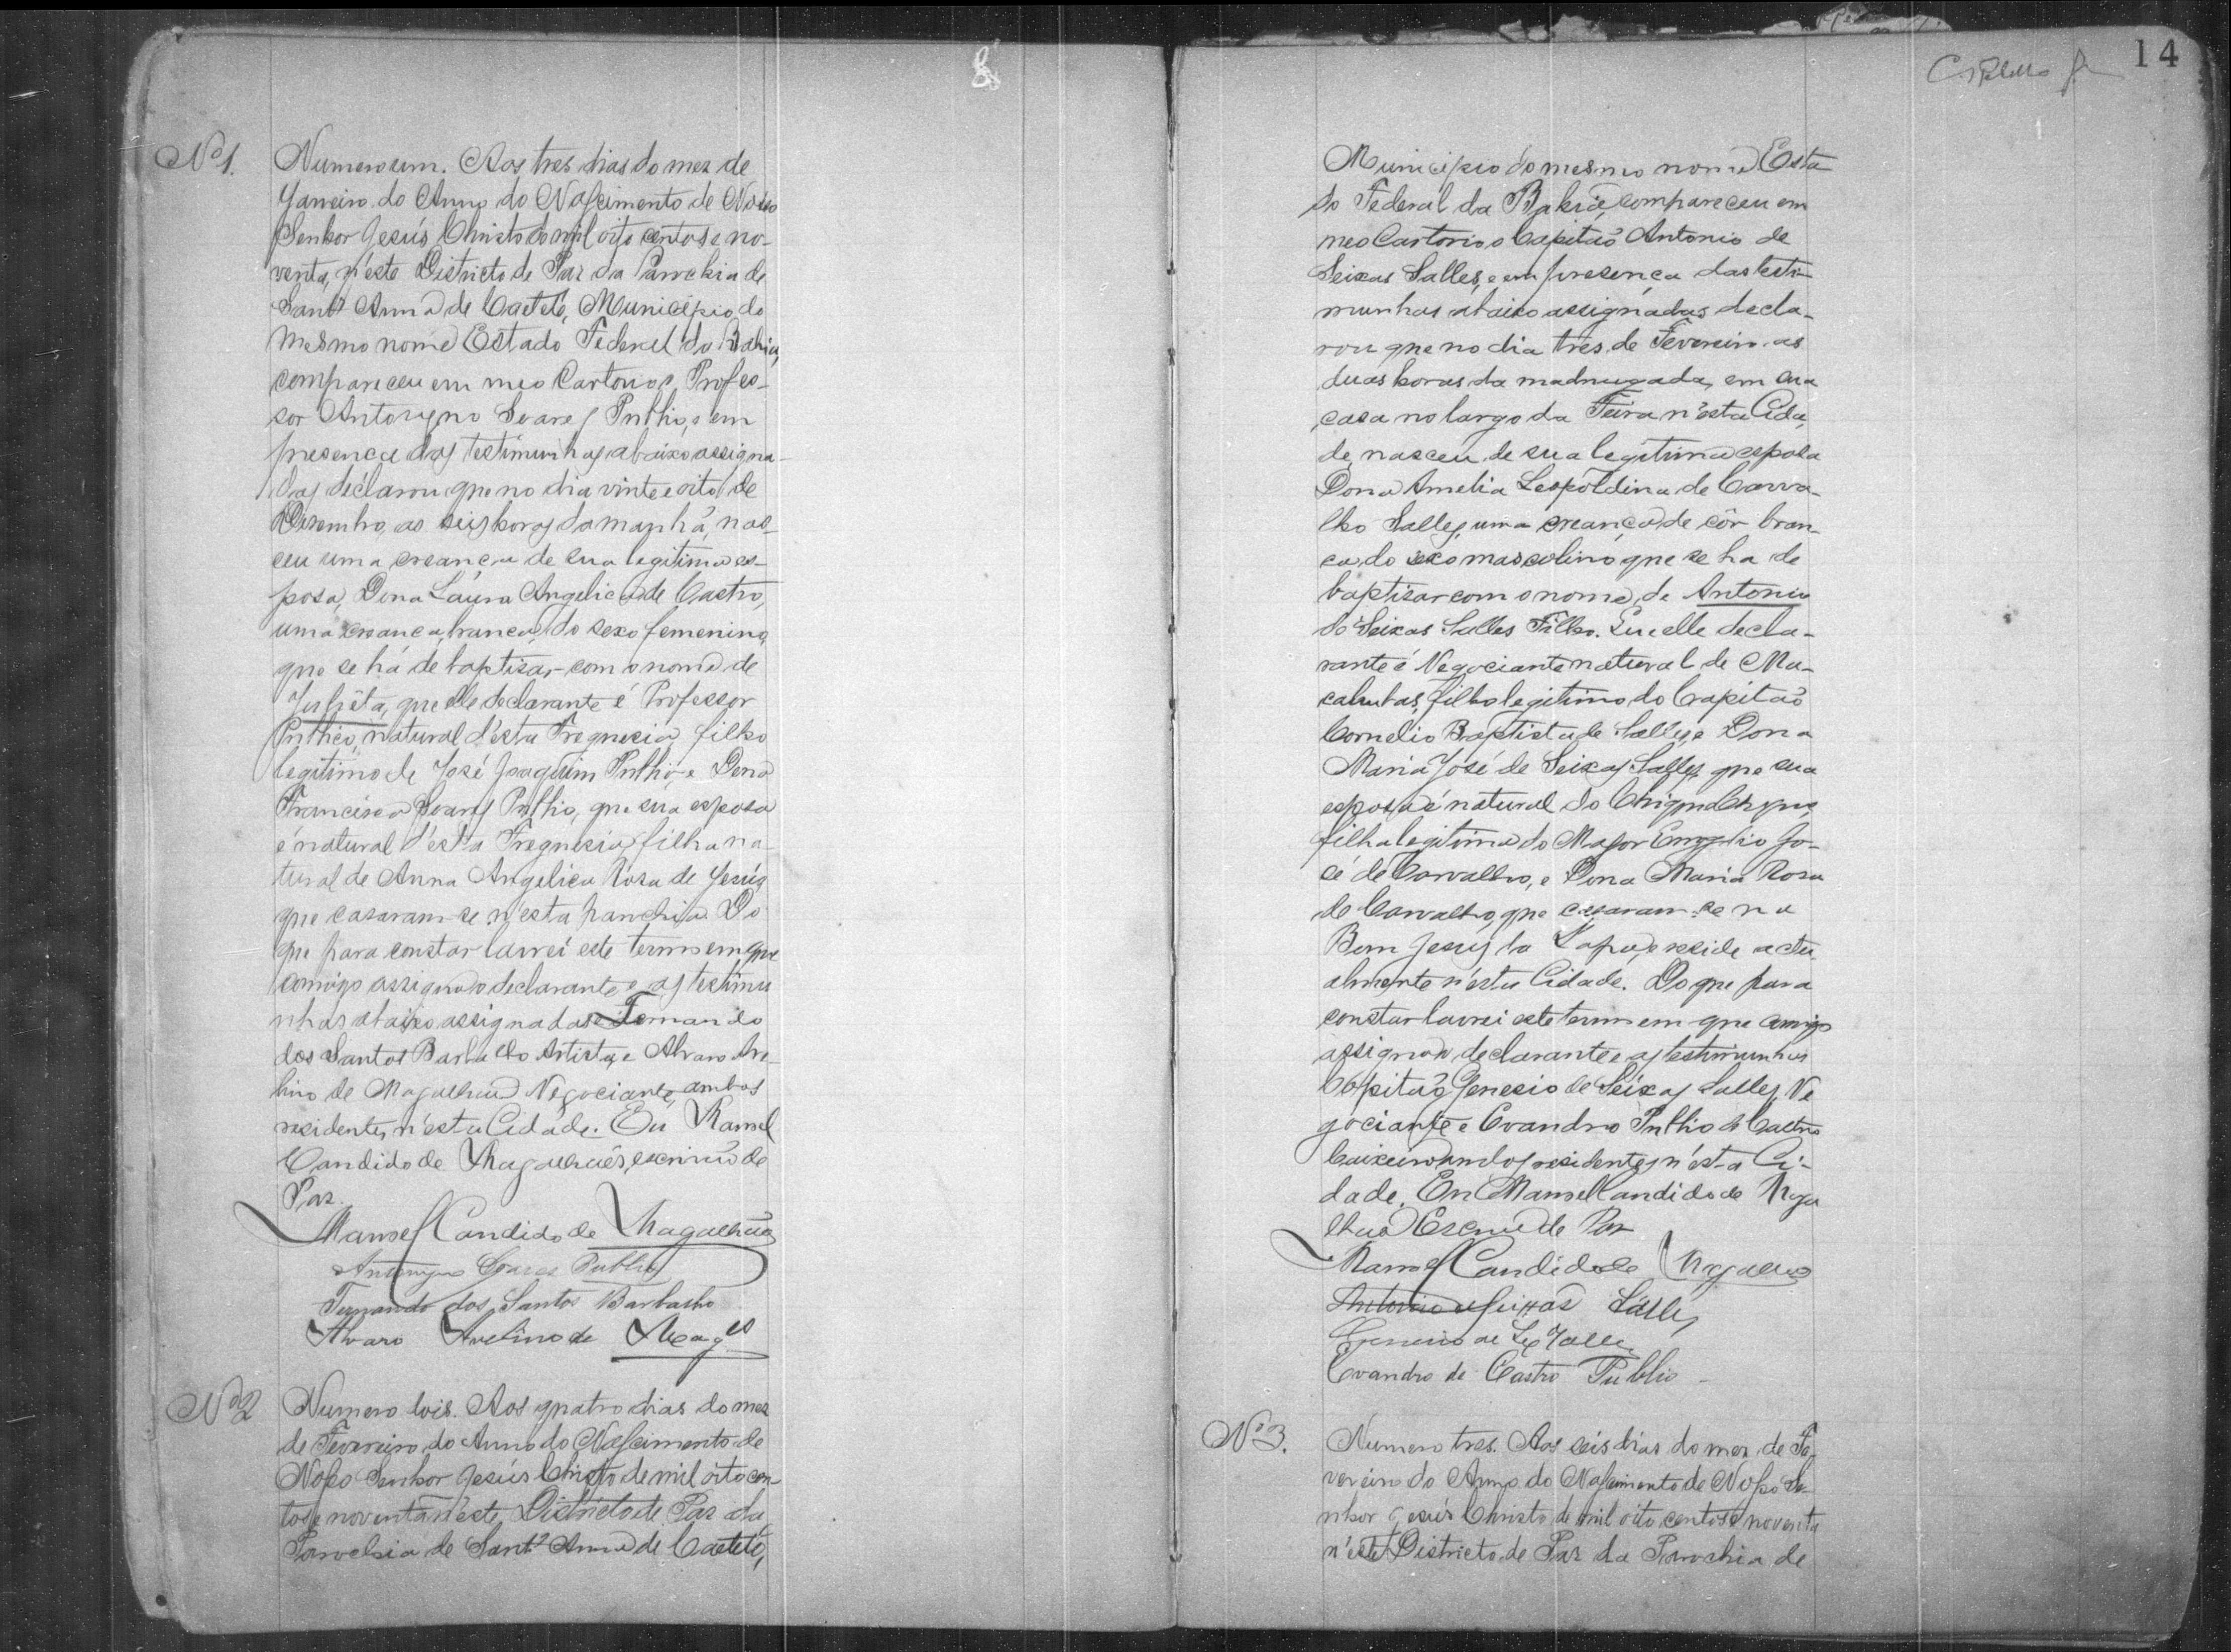 8
Nº 1.
Numero um. Aos tres dias do mez de
Janeiro do Anno do Nascimento de Nosso
Senhor Jesús Christo de mil oito centos e no-
venta, n'este Districto de Paz da Parochia de
Sant'Anna de Caeteté, Municipio do
mesmo nome Estado Federal da Bahia,
compareceu em meo Cartorio o Profes-
sor Antonyno Soares Publio, e em
presença das testimunhas abaixo assigna-
das declarou que no dia vinte e oito de
Dezembro, as seis horas da manhã, nas-
ceu uma creança de sua legitima es-
posa, Dona Laura Angelica de Castro,
uma creança, branca, do sexo femenino,
que se há de baptisar com o nome de
Julieta, que elle declarante é Professor
Publico, natural d'esta Freguesia, filho
legitimo de José Joaquim Publio, e Dona
Francisca Soares Publio, que sua esposa
é natural d'esta Freguesia, filha na-
tural de Anna Angelica Rosa de Jesús,
que casaram-se n'esta parochia. Do
que para constar lavrei este termo em que
comigo assigna o declarante e as testimu
nhas abaixo assignadas Fernando
dos Santos Barbalho Artista, e Alvaro Ave-
lino de Magalhães Negociante, ambos
residentes n'esta Cidade. Eu Manoel
Candido de Magalhães, escrivão de
Paz.
Manoel Candido de Magalhães
Antonyno Soares Publio
Fernando dos Santos Barbalho
Alvaro Avelino de Mag.es
Nº 2
Numero dois. Aos quatro dias do mez
de Fevereiro do Anno do Nascimento de
Nosso Senhor Jesús Christo de mil oito cen-
tos e noventa n'este Districto de Paz da
Parochia de Sant'Anna de Caeteté,
14
Municipio do mesmo nome Esta
do Federal da Bahia, compareceu em
meo Cartorio o Capitão Antonio de
Seixas Salles, e em presença das testi-
munhas abaixo assignadas decla-
rou que no dia tres de Fevereiro as
duas horas da madrugada, em sua
casa no largo da Feira n'esta Cida,
de, nasceu de sua legitima esposa
Dona Amelia Leopoldina de Carva-
lho Salles, uma creança, de côr bran-
ca, do sexo masculino, que se ha de
baptisar com o nome de Antonio
de Seixas Salles Filho. Que elle decla-
rante é Negociante natural de Ma-
cahubas, filho legitimo do Capitão
Cornelio Baptista de Salles, e Dona
Maria José de Seixas Salles, que sua
esposa é natural do Chique Chique,
filha legitima do Major Jo-
sé de Carvalho, e Dona Maria Rosa
de Carvalho, que casaram-se na
Bom Jesus da Lapa, e reside actu
almente n'esta Cidade. Do que para
constar lavrei este termo em que comigo
assigna o declarante e as testimunhas
Capitão Genesio de Seixas Salles, Ne
gociante e Evandro Publio de Castro
Caixeiro ambos residentes n'esta Ci-
dade. Eu Manoel Candido de Maga
lhães Escrivão de Paz
Manoel Candido de Magalhães
Antonio de Seixas Salles
Genesio de Sxas Salles
Evandro de Castro Publio
Nº 3.
Numero tres. Aos seis dias do mez de Fe
vereiro do Anno do Nascimento de Nosso Se-
nhor Jesús Christo de mil oito centos e noventa
n'este Districto de Paz da Parochia de